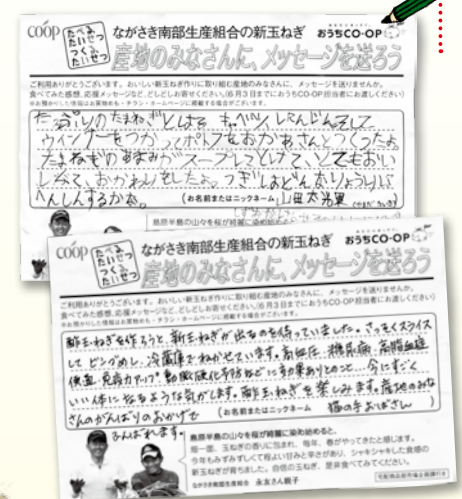 coop
たべる
たいせつ
つくる
たいせつ
ながさき南部生産組合の新玉ねぎ
おうちCO・OP
産地のみなさんに、メッセージを送ろう
ご利用ありがとうございます。おいしい新玉ねぎ作りに取り組む産地のみなさんに、メッセージを送りませんか。
食べてみた感想、応援メッセージなど、どしどしお寄せください。(6月3日までにおうちCO・OP担当者にお渡しください)
※お預かりした情報はお買物めも・チラシ・ホームページに掲載する場合がございます。
たっぷりのたまねぎと
ウインナーをつかってポトフをおかあさんとつくったよ。
たまねぎのあまみがスープにとけて、とてもおい
しくて、おかわりをしたよ。つぎはどんなりょうりに
へんしんするか。
(お名前またはニックネーム 山田
島原半島の山々を桜が綺麗に染め始めると、
coop
たべる
たいせつ
つくる
たいせつ
ながさき南部生産組合の新玉ねぎ
おうちCO・OP
産地のみなさんに、メッセージを送ろう
ご利用ありがとうございます。おいしい新玉ねぎ作りに取り組む産地のみなさんに、メッセージを送りませんか。
食べてみた感想、応援メッセージなど、どしどしお寄せください。(6月3日までにおうちCO・OP担当者にお渡しください)
※お預かりした情報はお買物めも・チラシ・ホームページに掲載する場合がございます。
酢玉ねぎを作ろうと、新玉ねぎが出るのを待っていました。さっそくスライス
してビンづめし、冷蔵庫でねかせています。高血圧、糖尿病、高脂血症
便秘、免疫力アップ、動脈硬化予防などに効果ありとのこと…今にすごく
いい体になるような気がします。酢玉ねぎを楽しみます。産地のみな
さんのがんばりのおかげで
(お名前またはニックネーム 猫の手おばさん )
がんばれます。
島原半島の山々を桜が綺麗に染め始めると、
畑一面、玉ねぎの香りに包まれ、毎年、春がやってきたと感じます。
今年もみずみずしくて程よい甘みと辛さがあり、シャキシャキした食感の
新玉ねぎが育ちました。自信の玉ねぎ、是非食べてみてください。
ながさき南部生産組合 永友さん親子